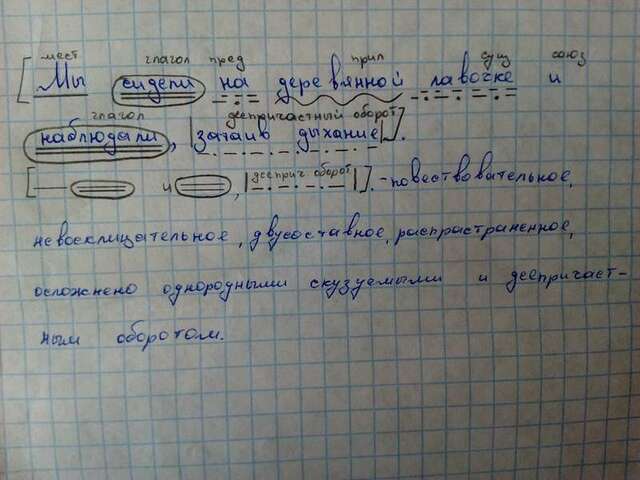 мест глагол пред прил сущ союз
[Мы сидели на деревянной лавочке и
глагол деепричастный оборот
наблюдали, |затаив дыхание|].
[— и , |дееприч оборот|]. -повествовительное,
невосклицательное, двусоставное, распространенное,
осложнено однородными скузуемыми и деепричаст-
ным оборотом.